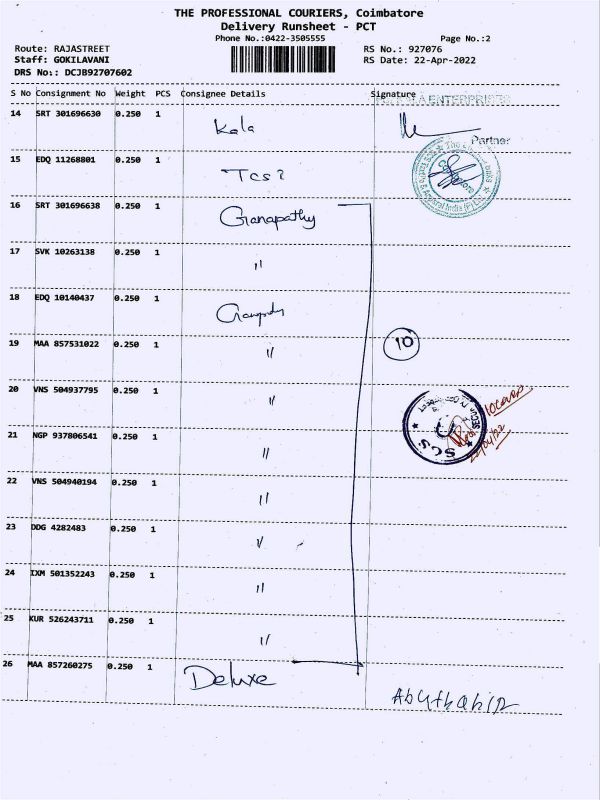 THE PROFESSIONAL COURIERS, Coimbatore
Delivery Runsheet - PCT
Phone No.:0422-3505555 Page No.:2
Route: RAJASTREET RS No.: 927076
Staff: GOKILAVANI RS Date: 22-Apr-2022
DRS No.: DCJB92707602
S No Consignment No Weight PCS Consignee Details Signature
14 SRT 301696630 0.250 1 Kala
Partner
15 EDQ 11268801 0.250 1
16 SRT 301696638 0.250 1 Ganapathy
17 SVK 10263138 0.250 1 "
18 EDQ 10140437 0.250 1
19 MAA 857531022 0.250 1 " 10
20 VNS 504937795 0.250 1 "
21 NGP 937806541 0.250 1 " SCS
22 VNS 504940194 0.250 1 "
23 DDG 4282483 0.250 1 "
24 IXM 501352243 0.250 1 "
25 KUR 526243711 0.250 1 "
26 MAA 857260275 0.250 1 Deluxe